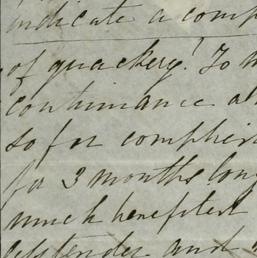 indicate a comp
of quackery! To
continuance
so far
for 3 months long
much benefited
and